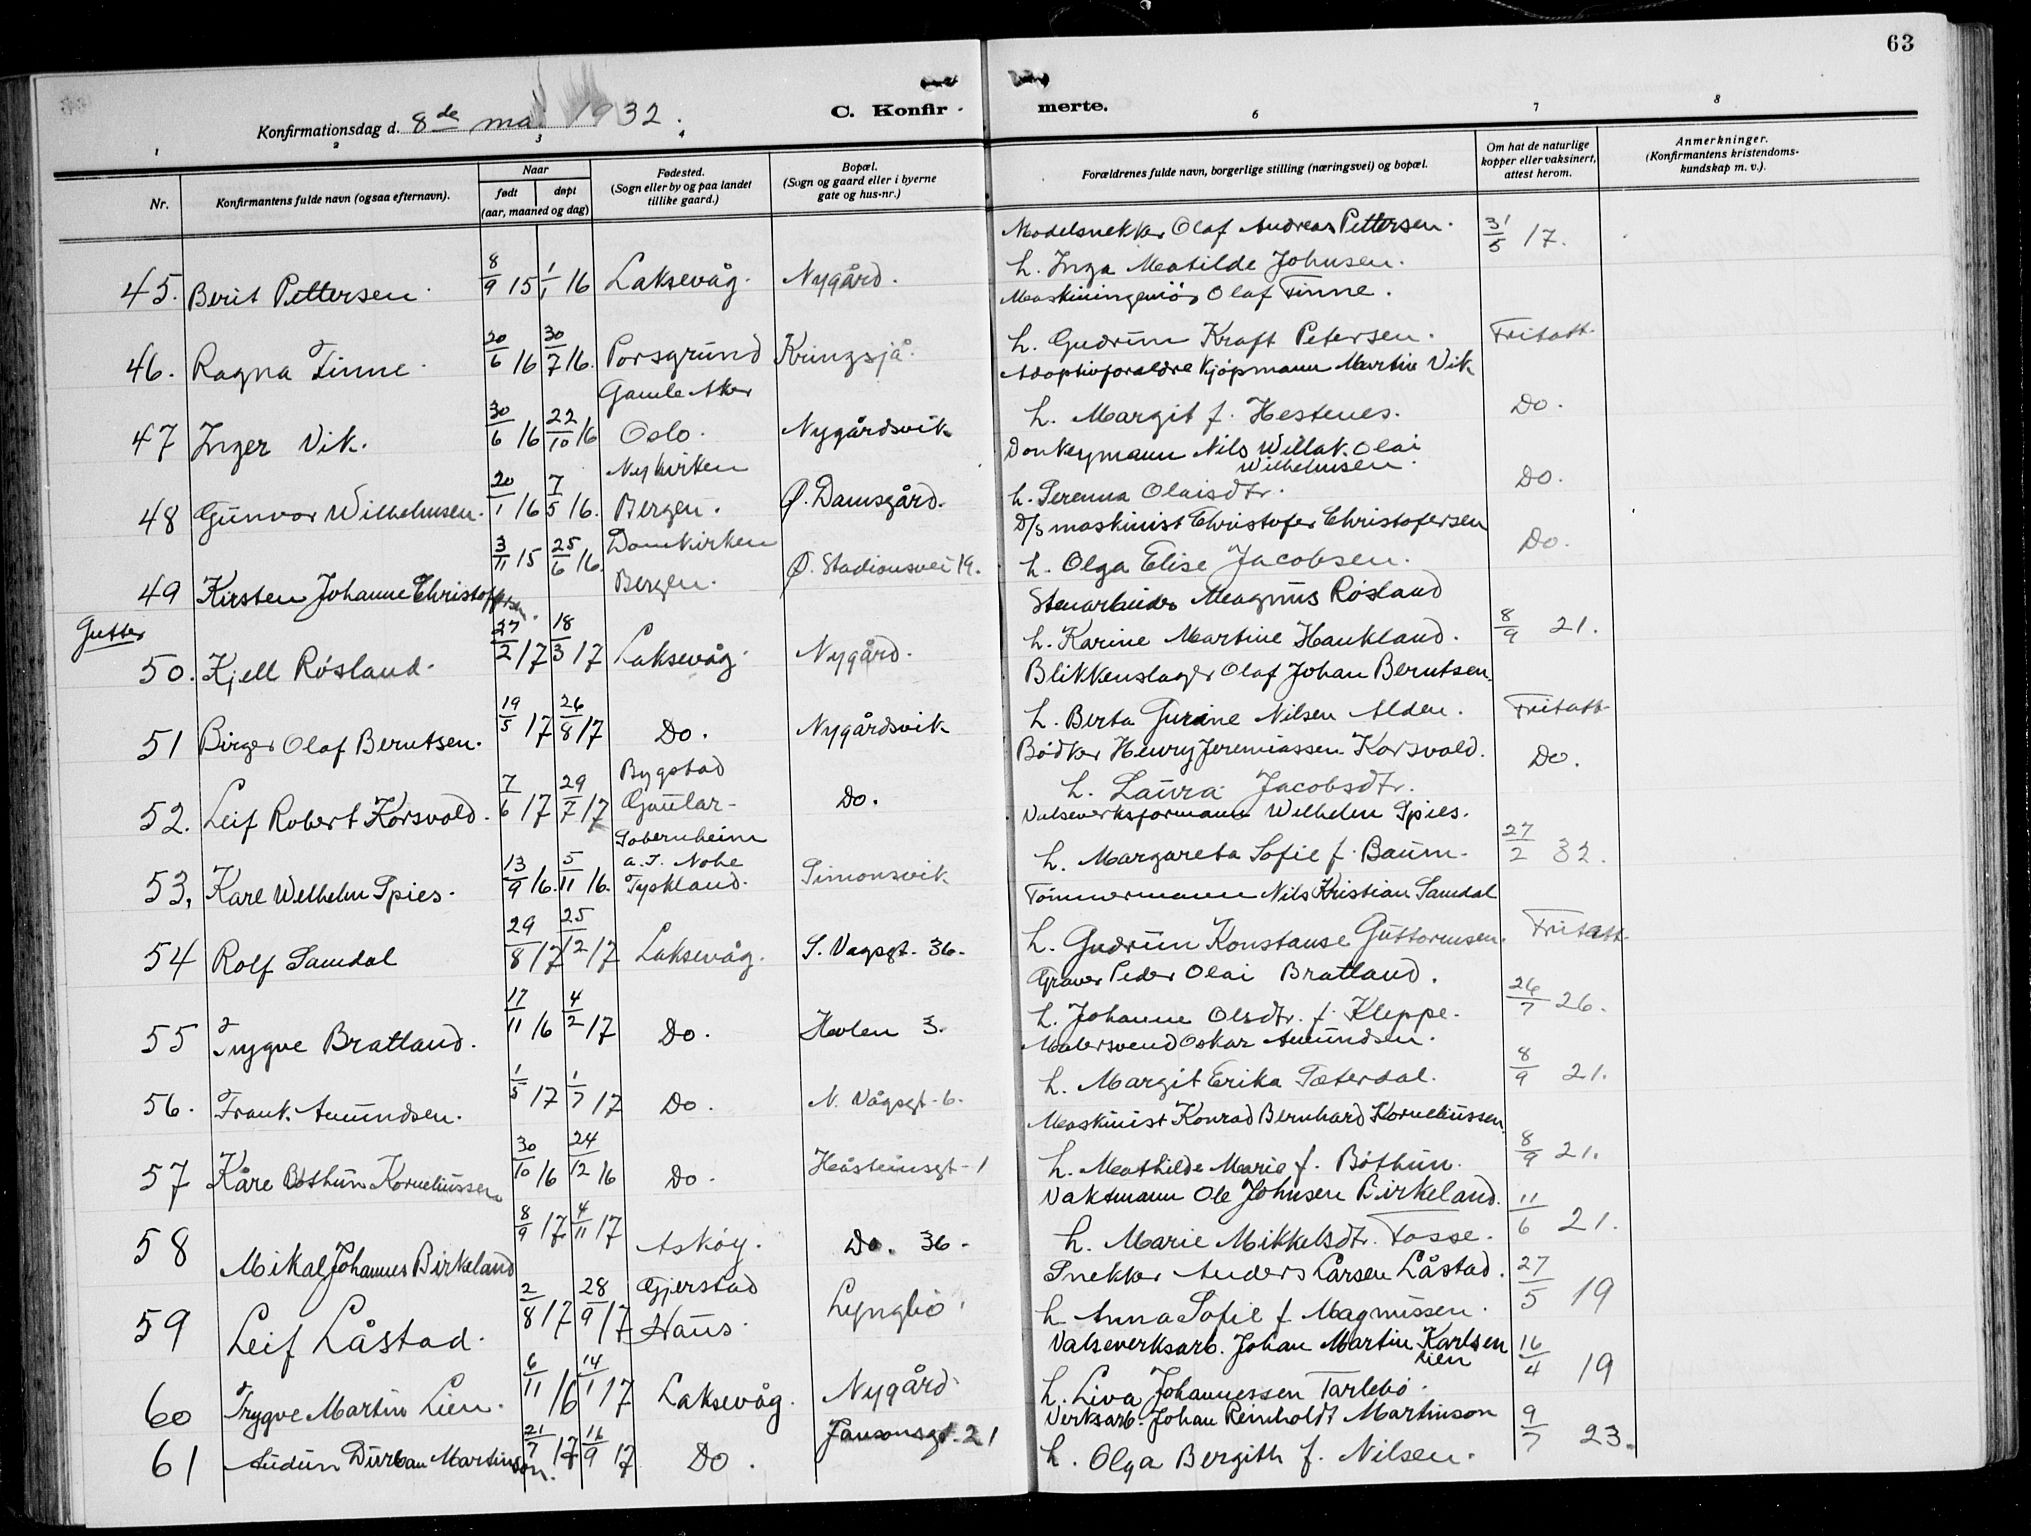 63
Konfirmationsdag d. 8de mai 1932.
C. Konfirmerte.
1 2 3 4 6 7 8
Nr.
Konfirmantens fulde navn (ogsaa efternavn).
Naar
født døpt
(aar, maaned og dag)
Fødested.
(Sogn eller by og paa landet
tillike gaard.)
Bopæl.
(Sogn og gaard eller i byerne
gate og hus-nr.)
Forældrenes fulde navn, borgerlige stilling (næringsvei) og bopæl.
Om hat de naturlige
kopper eller vaksinert,
attest herom.
Anmerkninger.
(Konfirmantens kristendoms-
kundskap m. v.).
Modelsnekker Olaf Andreas Pettersen.
45. Berit Pettersen. 8/9 15 1/1 16 Laksevåg. Nygård. h. Inga Matilde Johnsen. 31/5 17.
Maskiningeniør Olaf Finne.
46. Ragna Finne. 20/6 16 30/7 16. Porsgrund Kringsjå. h. Gudrun Kraft Petersen. Fritatt.
Gamle Aker Adoptivforældre Kjøpmann Martin Vik
47 Inger Vik. 30/6 16 22/10 16 Oslo. Nygårdsvik h. Margit f. Hestenes. Do.
Nykirken Donkeymann Nils Willak. Olai
Wilhelmsen.
48 Gunvor Wilhelmsen. 20/1 16 7/5 16. Bergen. Ø. Damsgård. h. Serenna Olaisdtr. Do.
Domkirken D/s maskinist Christofer Christofersen
49 Kirsten Johanne Christoffersen. 3/11 15 25/6 16. Bergen. Ø. Stadionsvei 19. h. Olga Elise Jacobsen. Do.
Gutter
Stenarbeider Magnus Røsland
50. Kjell Røsland. 27/2 17 18/3 17 Laksevåg. Nygård. h. Karine Martine Haukland. 8/9 21.
Blikkenslager Olaf Johan Berntsen.
51 Birger Olaf Berntsen. 19/5 17 26/8 17 Do. Nygårdsvik h. Berta Gurine Nilsen Alden. Fritatt
Bygstad Bødker Henry Jeremiassen Korsvold.
52. Leif Robert Korsvold. 7/6 17 29/7 17 Gaular- Do. h. Laura Jacobsdtr. Do.
Sobernheim Valseverksformann Wilhelm Spies.
a. d. Nahe
53. Karl Wilhelm Spies. 13/9 16. 5/11 16. Tyskland. Simonsvik h. Margareta Sofie f. Baum. 27/2 32.
Tømmermann Nils Kristian Samdal
54 Rolf Samdal 29/8 17 25/12 17 Laksevåg. S. Vagsgt. 36. h. Gudrun Konstanse Guttormsen. Fritatt.
Graver Peder Olai Bratland.
55 Trygve Bratland. 17/11 16 4/2 17 Do. Holen 3. h. Johanne Olsdtr. f. Kleppe. 26/7 26.
Malersvend Oskar Amundsen.
56. Frank Amundsen. 1/5 17 1/7 17 Do. N. Vågsgt. 6. h. Margit Erika Sæterdal. 8/9 21.
Maskinist Konrad Bernhard Korneliussen.
57 Kåre Bøthun Korneliussen 30/10 16 24/12 16 Do. Håsteinsgt. 1 h. Mathilde Marie f. Bøthun. 8/9 21.
Vaktmann Ole Johnsen Birkeland.
58 Mikal Johannes Birkeland 8/9 17 4/11 17 Askøy. Do. 36. h. Marie Mikkelsdtr. Fosse. 11/6 21.
Gjerstad Snekker Anders Larsen Låstad.
59 Leif Låstad. 2/8 17 28/9 17 Haus. Lyngbø. h. Anna Sofie f. Magnussen. 27/5 19
Valseverksarb. Johan Martin Karlsen
Lien
60 Trygve Martin Lien. 6/11 16 14/1 17 Laksevåg. Nygård h. Liva Johannessen Tarlebø. 16/4 19
Verksarb. Johan Reinholdt Martinson
61 Audun Durban Martinson. 21/7 17 16/9 17 Do. Jansonsgt. 21 h. Olga Bergith f. Nilsen. 9/7 23.